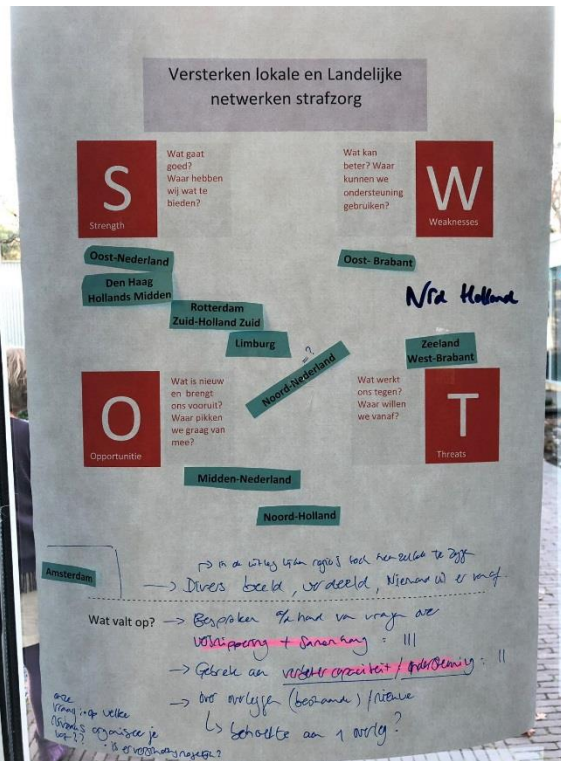 Versterken lokale en Landelijke
netwerken strafzorg
S
Strength
Wat gaat
goed?
Waar hebben
wij wat te
bieden?
Wat kan
beter? Waar
kunnen we
ondersteuning
gebruiken?
W
Weaknesses
Oost-Nederland
Den Haag
Hollands Midden
Rotterdam
Zuid-Holland Zuid
Limburg
Oost- Brabant
Nrd Holland
Zeeland
West-Brabant
= ?
Noord-Nederland
O
Opportunitie
Wat is nieuw
en brengt
ons vooruit?
Waar pikken
we graag van
mee?
Wat werkt
ons tegen?
Waar willen
we vanaf?
T
Threats
Midden-Nederland
Noord-Holland
Amsterdam
→ in de uitleg lijken regio's toch hetzelfde te zijn
→ Divers beeld, verdeeld, Niemand wil er vanaf.
Wat valt op?
→ Besproken a/d hand van vragen over
versnippering + samenhang : III
→ Gebrek aan capaciteit / ondersteuning : II
→ over overleggen (bestaande) / nieuwe
↳ behoefte aan 1 overleg?
onze
vraag: op welke
niveaus organiseer je